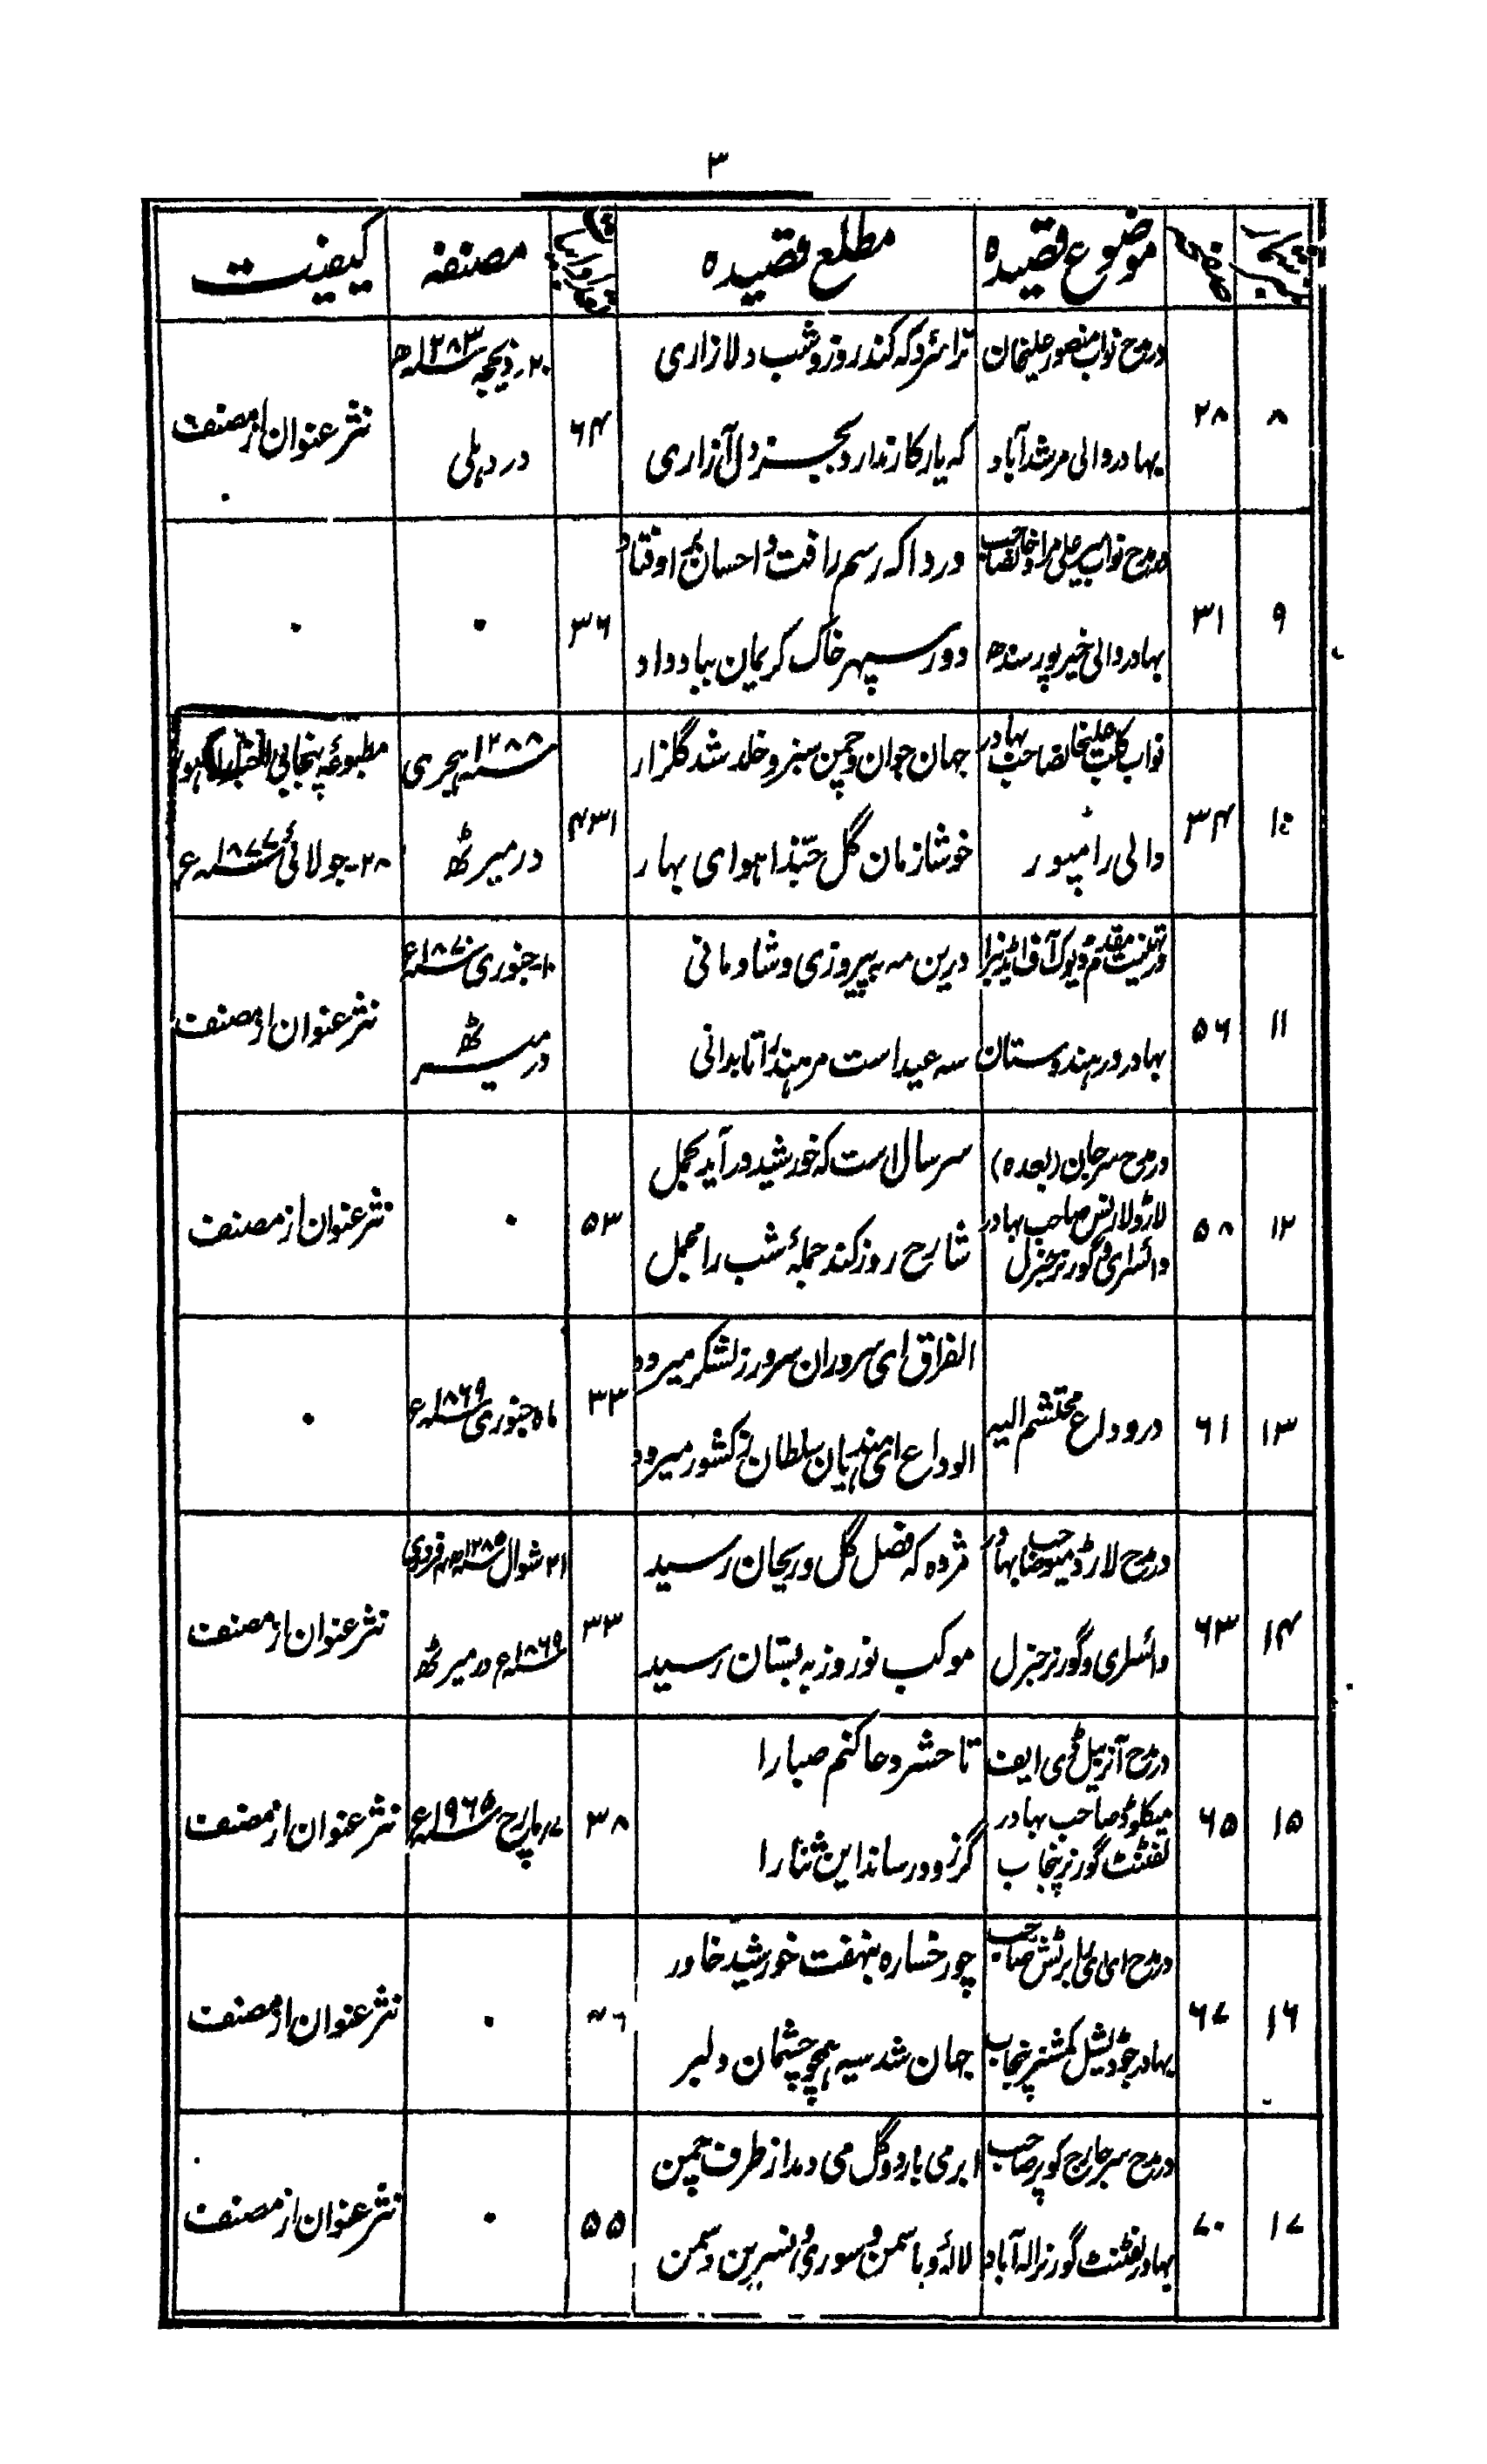 ۳
نمبر شمار | صفحہ | موضوع قصیدہ | مطلع قصیدہ | تعداد ابیات | مصنفہ | کیفیت
۸ | ۲۸ | در مدح نواب منصور علیخان بہادر والی مرشدآباد | ترا سزد کہ کند روز و شب دلازاری
کہ یار کار ندارد بجز دل آزاری | ۶۴ | ۲۰ ذیحجہ ۱۲۸۳ھ در دہلی | نثر عنوان از مصنف
۹ | ۳۱ | در مدح نواب میر علی مراد خانصاحب بہادر والی خیرپور سندھ | دردا کہ رسم رافت و احسان بر اوفتاد
دور سپہر خاک کریمان بباد داد | ۳۶ | ۰ | ۰
۱۰ | ۳۴ | نواب کلب علیخانصاحب بہادر والی رامپور | جہان جوان و چمن سبز و خلد شد گلزار
خوشا زمان گل حبّذا ہوای بہار | ۴۳۱ | ۱۲۸۸ ہجری در میرٹھ | مطبوعۂ پنجابی اخبار لاہور ۲۸۔جولائی ۱۸۷۷ء
۱۱ | ۵۶ | در تہنیت مقدم ڈیوک آف اڈنبرا بہادر در ہندوستان | درین مہ بہ پیروزی و شادمانی
سہ عید است مر ہند را تا بدانی | ۱۰۔جنوری ۱۸۷۰ء در میرٹھ | نثر عنوان از مصنف
۱۲ | ۵۸ | در مدح سر جان (بعدہ) لارڈ لارنس صاحب بہادر وائسرای و گورنر جنرل | سر سال است کہ خورشید در آید بحمل
شارح روز کند جملۂ شب را مجمل | ۵۳ | ۰ | نثر عنوان از مصنف
۱۳ | ۶۱ | در وداع محتشم الیہ | الفراق ای سروران سرور ز لشکر میرود
الوداع ای ہندیان سلطان ز کشور میرود | ۳۳ | ماہ جنوری ۱۸۶۹ء | ۰
۱۴ | ۶۳ | در مدح لارڈ میو صاحب بہادر وائسرای و گورنر جنرل | مژدہ کہ فصل گل و ریحان رسید
موکب نوروز بہ بستان رسید | ۳۳ | ۲۱ شوال ۱۲۸۵ھ فروری ۱۸۶۹ء در میرٹھ | نثر عنوان از مصنف
۱۵ | ۶۵ | در مدح آنربیل ڈی ایف میکلوڈ صاحب بہادر لفٹنٹ گورنر پنجاب | تا حشر دعا کنم صبا را
گر زود رساند این ثنا را | ۳۸ | ۷؍مارچ ۱۹۶۵ء | نثر عنوان از مصنف
۱۶ | ۶۷ | در مدح ای ای برٹش صاحب بہادر جوڈیشل کمشنر پنجاب | چو رخسارہ بنہفت خورشید خاور
جہان شد سیہ ہمچو چشمان دلبر | ۴۶ | ۰ | نثر عنوان از مصنف
۱۷ | ۷۰ | در مدح سر جارج کوپر صاحب بہادر لفٹنٹ گورنر الہ آباد | ابر می بارد و گل می دمد از طرف چمن
لالہ و یاسمن و سوری و نسرین و سمن | ۵۵ | ۰ | نثر عنوان از مصنف